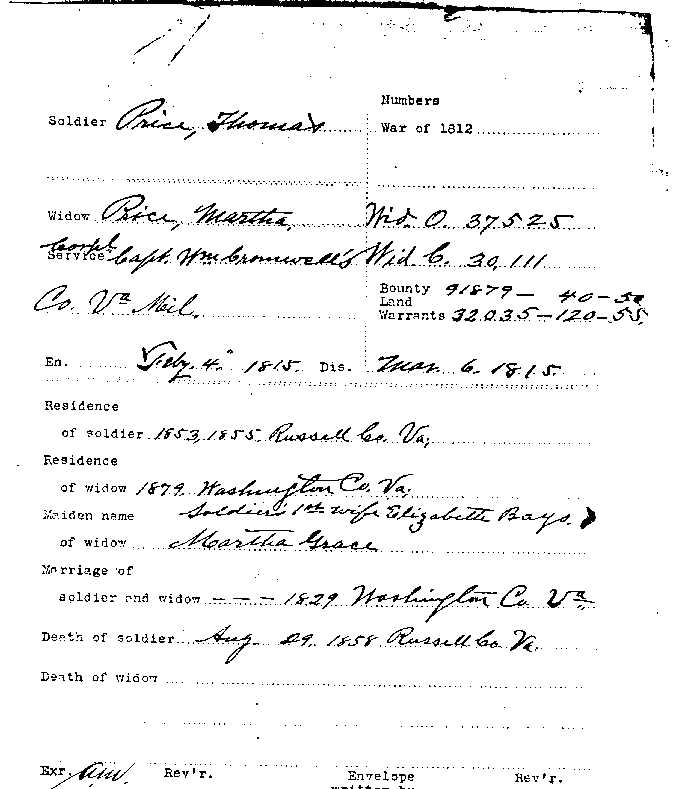 Numbers
Soldier Price, Thomas War of 1812
Widow Price, Martha, Wid. O. 37525
Corpl.
Service Capt. Wm Cromwell's Wid C. 30,111
Bounty 91879 — 40-50
Co. Va Mil. Land
Warrants 32035-120-55
En. Feby. 4" 1815. Dis. Mar. 6. 1815.
Residence
of soldier 1853, 1855 Russell Co. Va,
Residence
of widow 1879 Washington Co. Va.
Maiden name Soldier's 1st wife Elizabeth Bays.
of widow Martha Grace
Marriage of
soldier and widow - - - 1829 Washington Co Va
Death of soldier Aug 29, 1858 Russell Co Va.
Death of widow
Exr. Rev'r. Envelope Rev'r.
written by